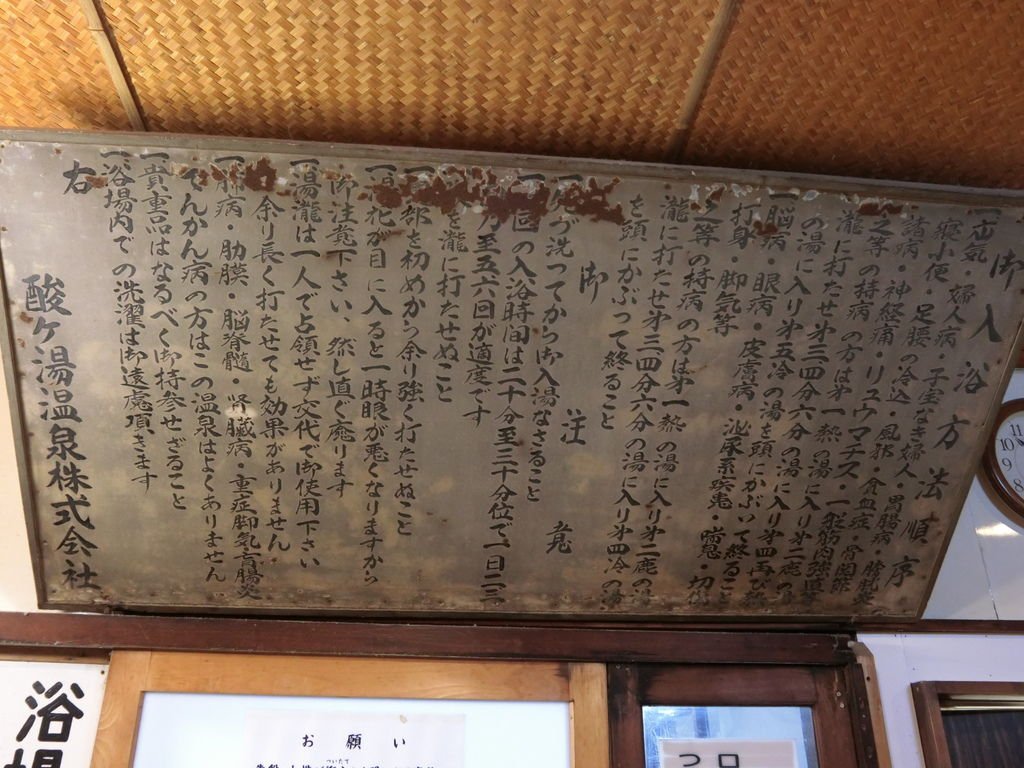 御入浴方法順序
一、疝気・婦人病・子宝なき婦人・胃腸病・膀胱
寝小便・足腰の冷込・風邪・貧血症・骨関節
諸病・神経痛・リュウマチス・一般筋肉強直
之等の持病の方は第一熱の湯に入り第二鹿の
瀧に打たせ第三四分六分の湯に入り第四再び熱
の湯に入り第五冷の湯を頭にかぶって終ること
一、脳病・眼病・皮膚病・泌尿系疾患・喘息・切傷
打身・脚気等
之等の持病の方は第一熱の湯に入り第二鹿の湯
瀧に打たせ第三四分六分の湯に入り第四冷の湯
を頭にかぶって終ること
御注意
一、先づ洗ってから御入湯なさること
一、一回の入浴時間は二十分至三十分位で一日二三
乃至五六回が適度です
を瀧に打たせぬこと
部を初めから余り強く打たせぬこと
一、湯花が目に入ると一時眼が悪くなりますから
御注意下さい、然し直ぐ癒ります
一、湯瀧は一人で占領せず交代で御使用下さい
余り長く打たせても効果がありません
一、肺病・肋膜・脳脊髄・腎臓病・重症脚気・盲腸炎
てんかん病の方はこの温泉はよくありません
一、貴重品はなるべく御持参せざること
一、浴場内での洗濯は御遠慮頂きます
右
酸ヶ湯温泉株式会社
浴場
お願い
ついたて
口